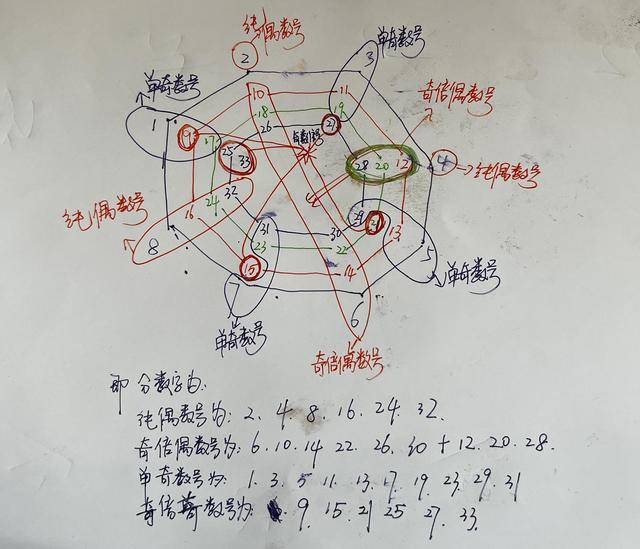 纯偶数号
单奇数号
单奇数号
2
3
1
10
11
奇倍偶数号
18
19
9
17
26
27
25
33
28
20
12
4
纯偶数号
纯偶数号
32
24
16
29
21
13
8
31
30
23
22
5
15
14
单奇数号
7
6
单奇数号
奇倍偶数号
即分数字为:
纯偶数号为: 2. 4. 8. 16. 24. 32.
奇倍偶数号为: 6. 10. 14 22. 26. 30 + 12. 20. 28.
单奇数号为: 1. 3. 5 11. 13. 17. 19. 23. 29. 31
奇倍奇数号为: 9. 15. 21 25 27. 33.